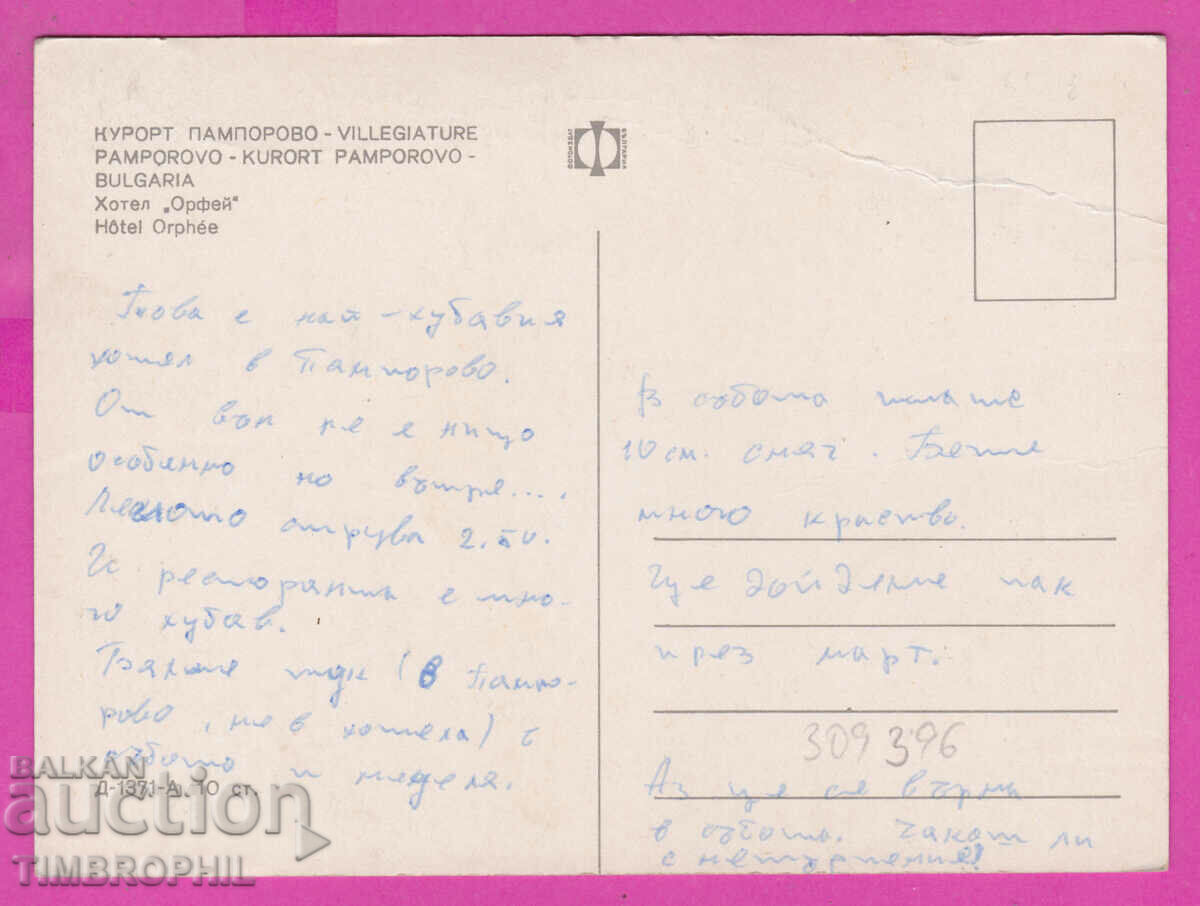 КУРОРТ ПАМПОРОВО - VILLEGIATURE
PAMPOROVO - KURORT PAMPOROVO -
BULGARIA
Хотел „Орфей"
Hôtel Orphée
Това е най-хубавия
хотел в Пампорово.
От вън не е нищо
особенно но вътре....
Леглото струва 2.
И ресторанта е мно-
го хубав.
Бяхме тук (в Пампо-
рово, не в хотела) с
събота и неделя.
Д-1371-А 10 ст.
В събота падаше
10 см. сняг. Беше
много красиво.
Ще дойдеме пак
през март.
309396
Аз ще се върна
в събота. Чакат ли
с нетърпение!
BALKAN
auction
TIMBROPHIL